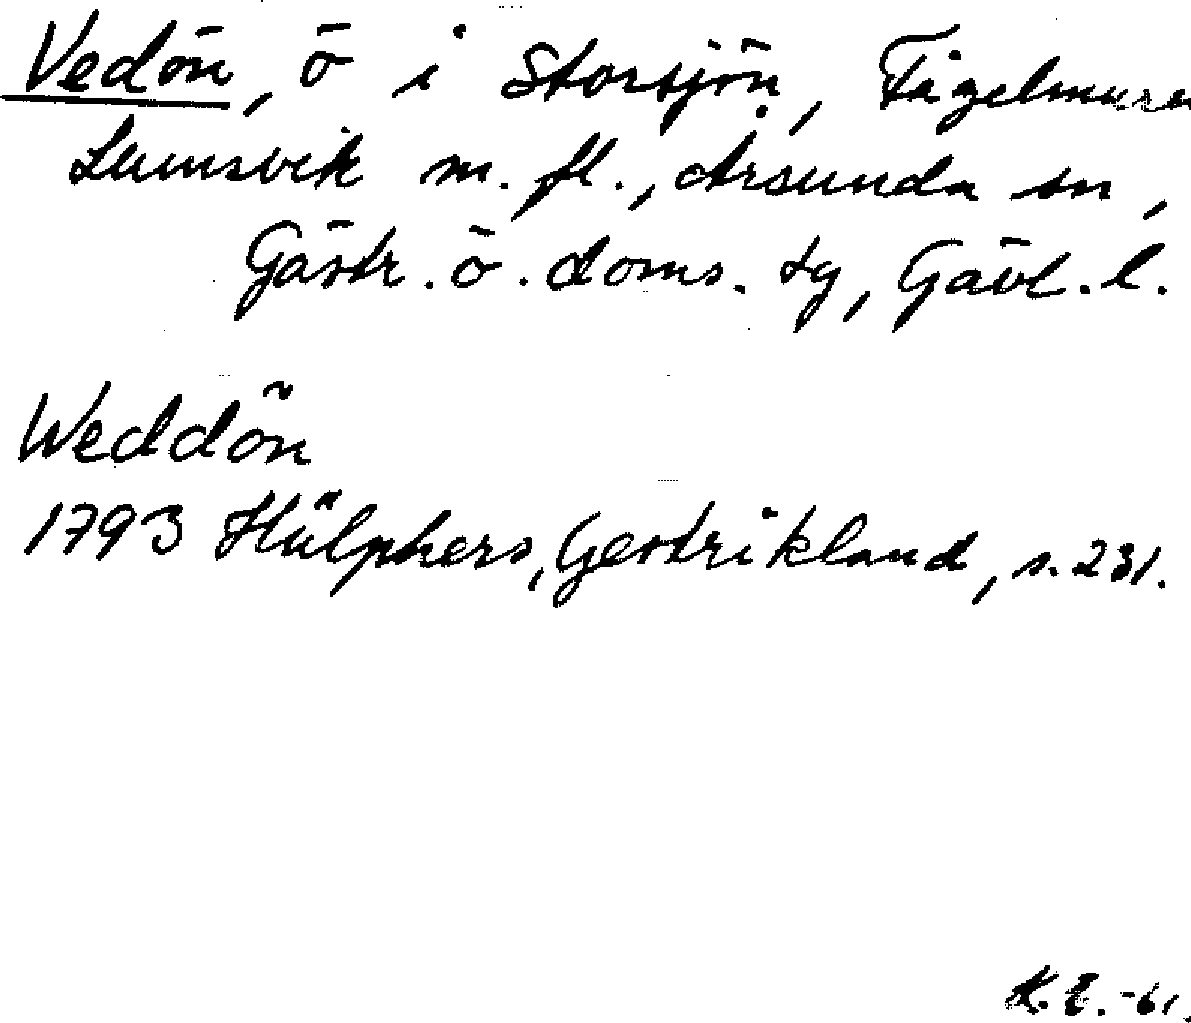 Vedön, ö i Storsjön, Fågelmuren
Lumsvik m. fl., Årsunda sn,
Gästr. ö. doms. tg, Gävl. l.
Weddön
1793 Hülphers, Gestrikland, s. 231.
K. E. -61.